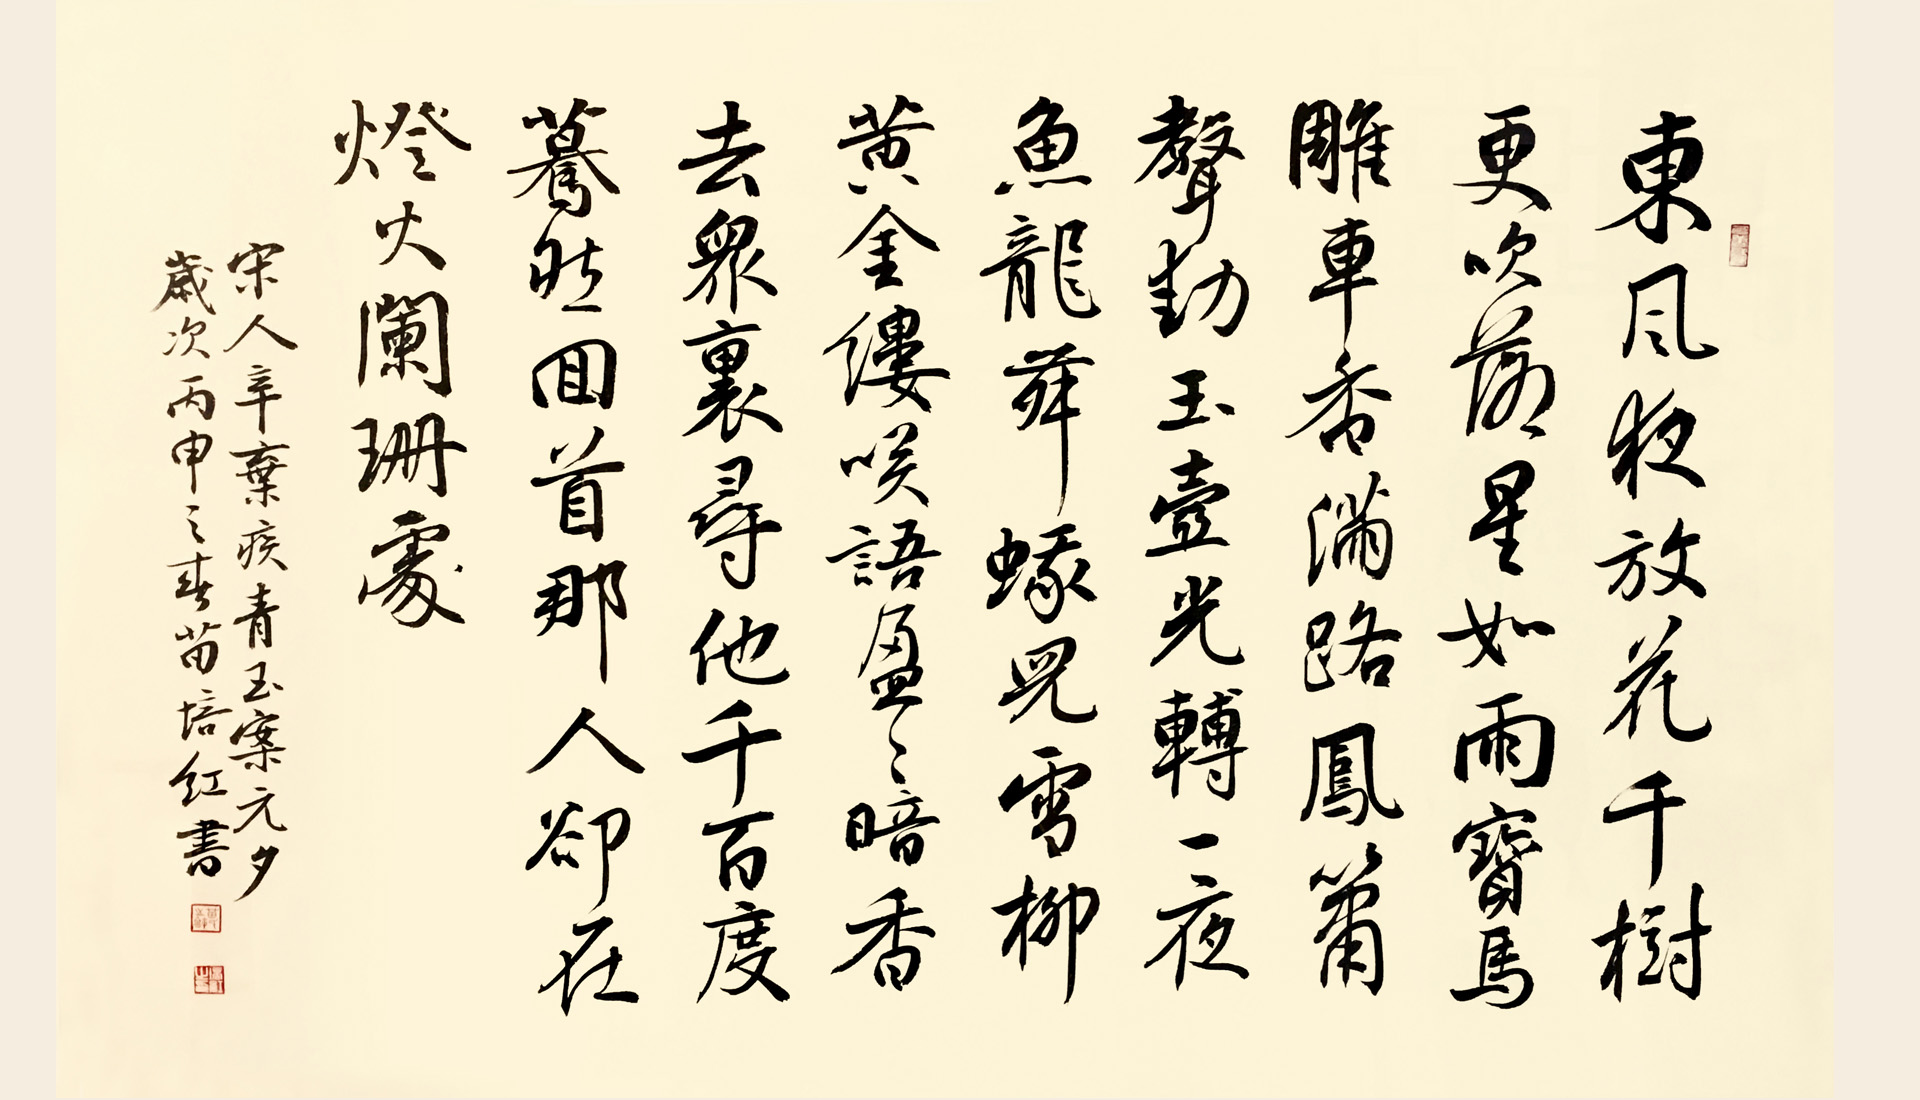 東風夜放花千樹
更吹落星如雨寶馬
雕車香滿路鳳簫
聲動玉壺光轉一夜
魚龍舞蛾兒雪柳
黄金縷咲語盈〻暗香
去衆裏尋他千百度
驀然回首那人卻在
燈火闌珊處
宋人辛棄疾青玉案元夕
歲次丙申之春苗培紅书